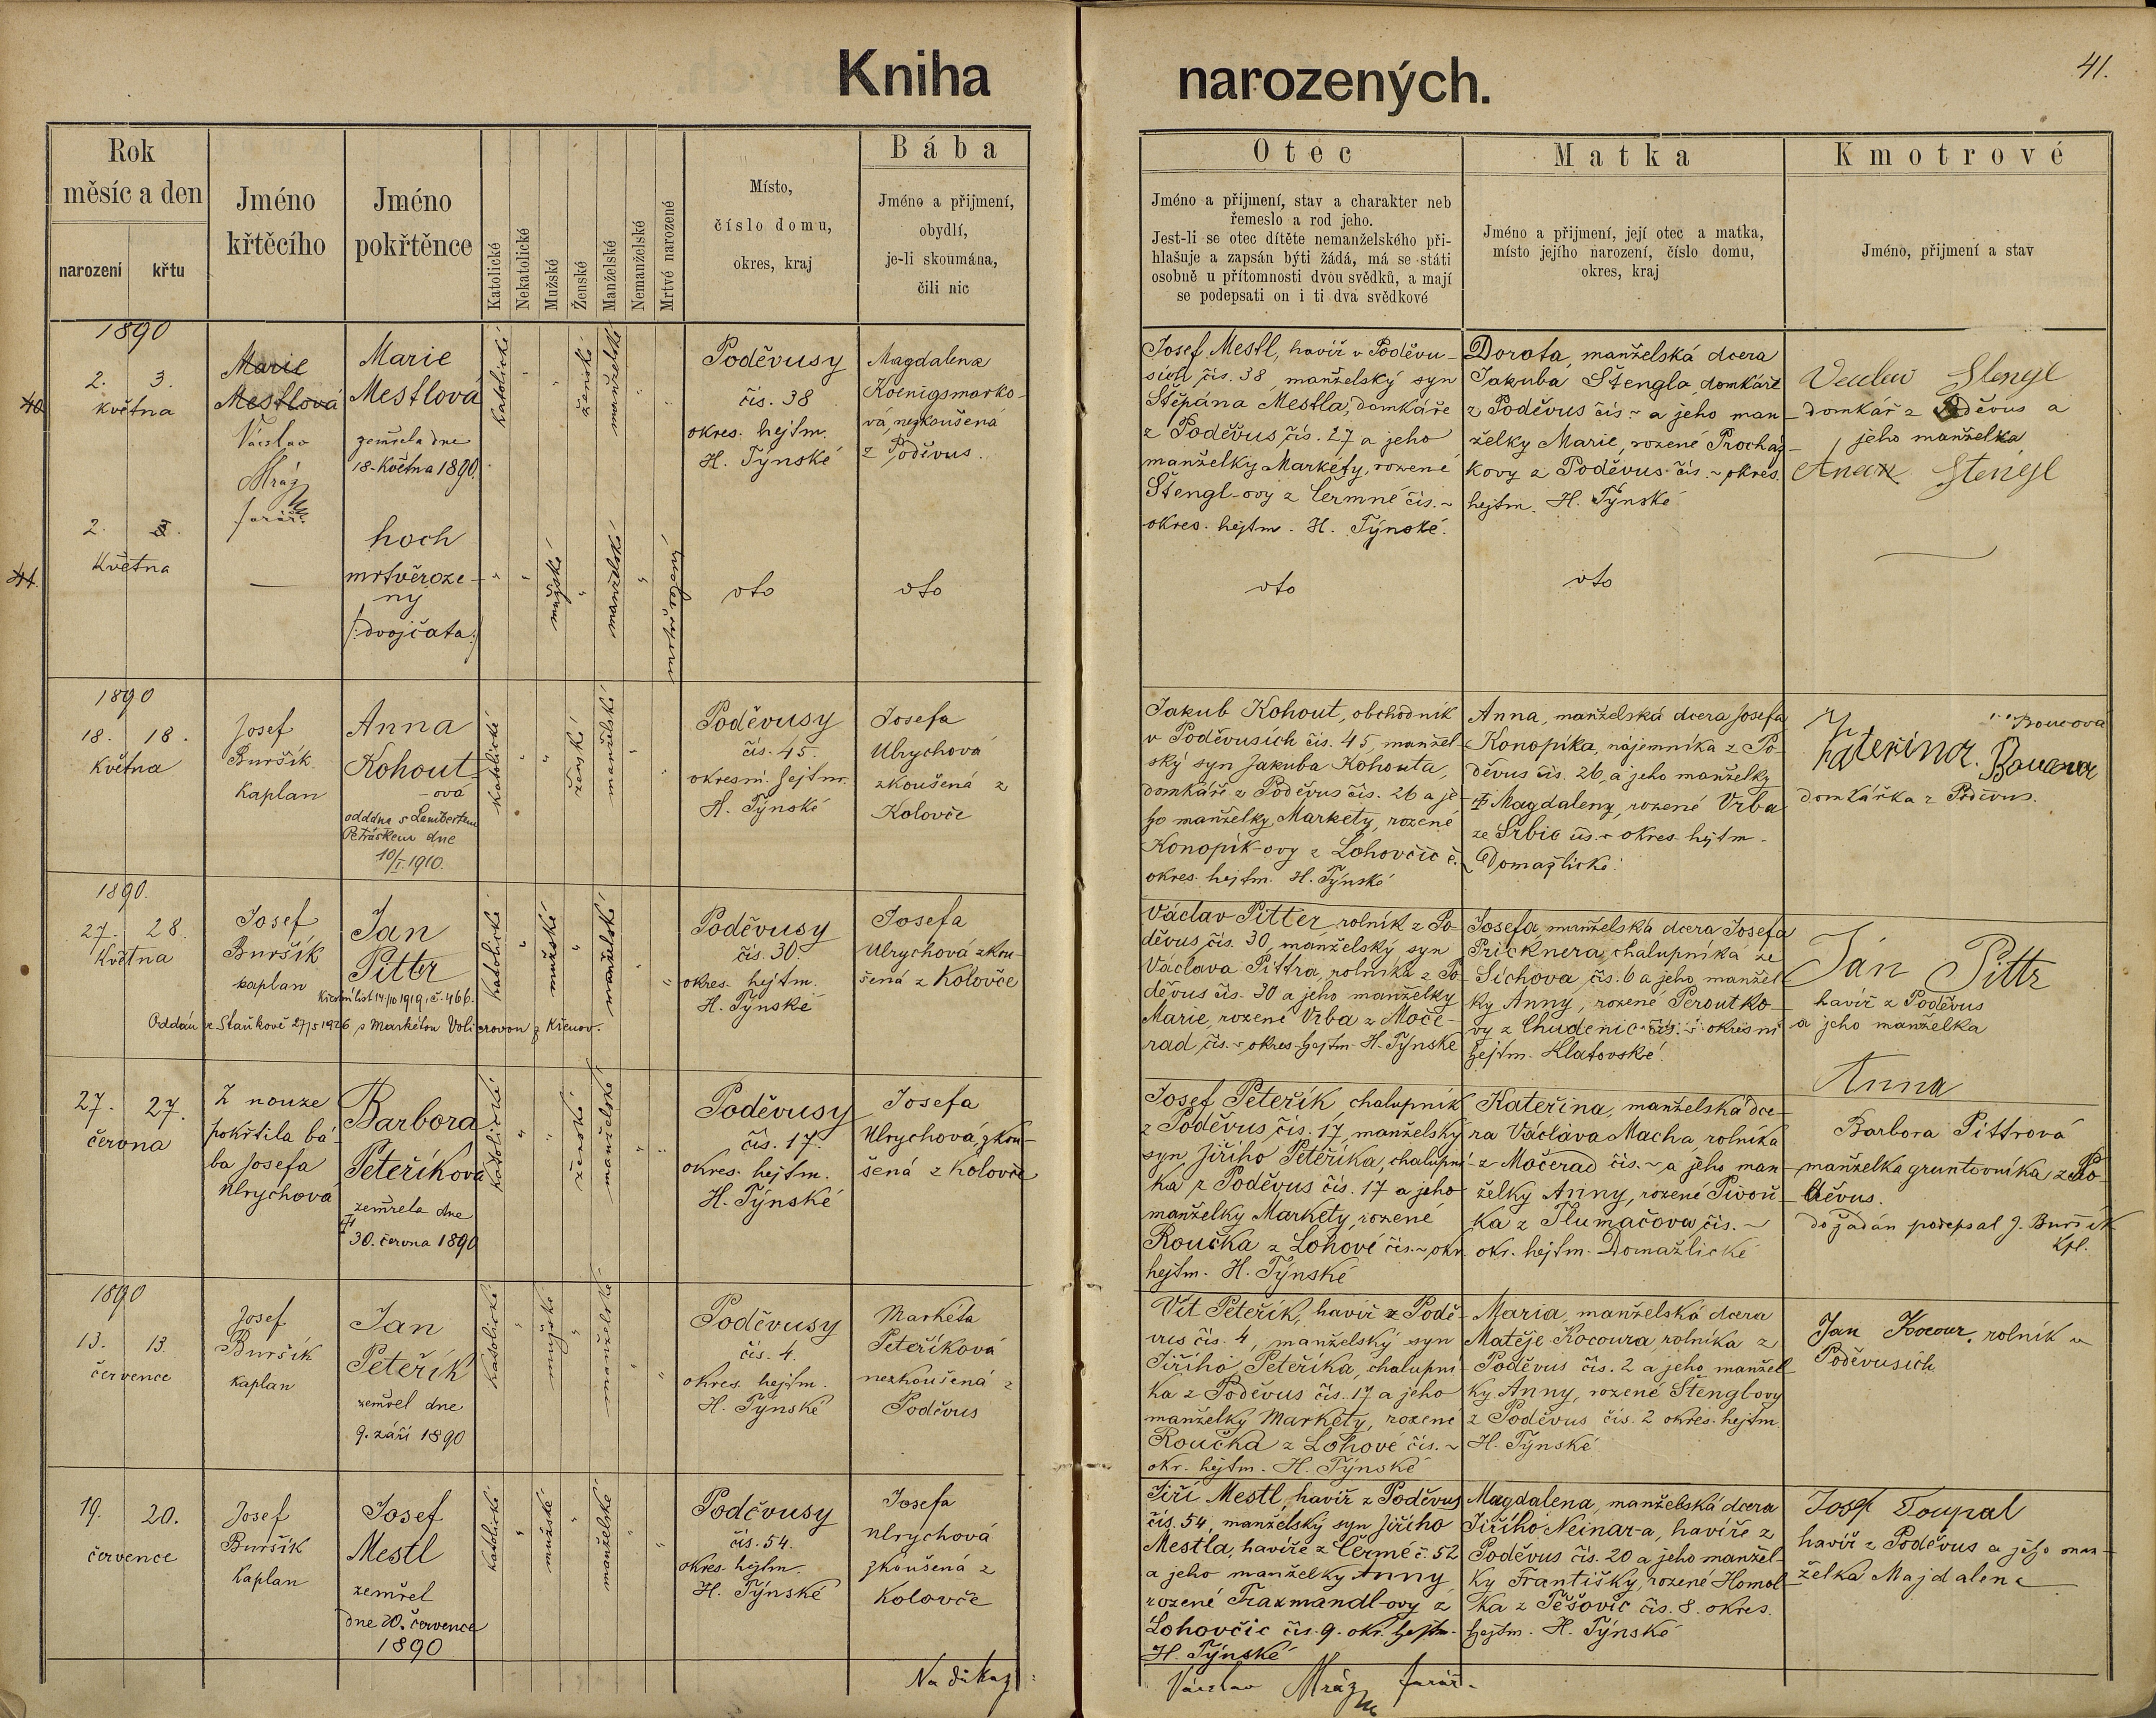 Kniha narozených.
41.
Rok
měsíc a den
narození
křtu
Jméno
křtěcího
Jméno
pokřtěnce
Katolické
Nekatolické
Mužské
Ženské
Manželské
Nemanželské
Mrtvé narozené
Místo,
číslo domu,
okres, kraj
Bába
Jméno a přijmení,
obydlí,
je-li skoumána,
čili nic
Otec
Jméno a přijmení, stav a charakter neb
řemeslo a rod jeho.
Jest-li se otec dítěte nemanželského při-
hlašuje a zapsán býti žádá, má se státi
osobně u přítomnosti dvou svědků, a mají
se podepsati on i ti dva svědkové
Matka
Jméno a přijmení, její otec a matka,
místo jejího narození, číslo domu,
okres, kraj
Kmotrové
Jméno, přijmení a stav
1890
40
2. 3.
května
Marie
Mestlová
Václav
Mráz
farář
Marie
Mestlová
zemřela dne
18. Května 1890.
katolické
ženské
manželské
Poděvusy
čís. 38
okres. hejtm.
H. Týnské
Magdalena
Koenigsmarko-
vá, nezkoušená
z Poděvus.
Josef Mestl, havíř v Poděvu-
sích čís. 38, manželský syn
Štěpána Mestla, domkáře
z Poděvus čís. 27 a jeho
manželky Markéty, rozené
Štengl-ovy z Čermné čís. ~
okres. hejtm. H. Týnské.
Dorota, manželská dcera
Jakuba Štengla domkáře
z Poděvus čís ~ a jeho man-
želky Marie, rozené Procház-
kovy z Poděvus čís. ~ okres.
hejtm. H. Týnské
Vaclav Stengl
domkář z Poděvus a
jeho manželka
Anna Stengl
41.
2.
Května
hoch
mrtvěroze-
ný
/:dvojčata:/
mužské
manželské
mrtvě rozený
oto
oto
oto
oto
1890
18. 18.
Května
Josef
Buršík
Kaplan
Anna
Kohout-
ová
oddána s Lambertem
Petráskem dne
10/I. 1910.
katolické
ženské
manželské
Poděvusy
čís. 45.
okresní hejtm.
H. Týnské
Josefa
Ulrychová
zkoušená z
Kolovče
Jakub Kohout, obchodník
v Poděvusích čís. 45, manžel-
ský syn Jakuba Kohouta,
domkáře z Poděvus čís. 26 a je-
ho manželky Markéty, rozené
Konopík-ovy z Lohovčic č.
okres. hejtm. H. Týnské
Anna, manželská dcera Josefa
Konopíka, nájemníka z Po-
děvus čís. 26, a jeho manželky
Magdaleny, rozené Vrba
ze Srbic čís. ~ okres. hejtm.
Domažlické.
Bourová
Kateřina. Bourova
domkářka z Poděvus.
1890.
27. 28.
Května
Josef
Buršík
kaplan
Jan
Pittr
Křestní list 14/10 1919, č. 466.
Oddán ve Staňkově 27/5 1926 s Markétou z Křenov.
katolické
mužské
manželské
Poděvusy
čís. 30.
okres. hejtm.
H. Týnské
Josefa
Ulrychová zkou-
šená z Kolovče
Václav Pitter, rolník z Po-
děvus, čís. 30, manželský syn
Václava Pittra, rolníka z Po-
děvus čís. 30 a jeho manželky
Marie, rozené Vrba z Moče-
rad čís. ~ okres. hejtm. H. Týnské
Josefa, manželská dcera Josefa
Pricknera, chalupníka ze
Sichova, čís. 6 a jeho manžel-
ky Anny, rozené Peroutko-
vy z Chudenic čís. ~ okresní
hejtm. Klatovské.
Ján Pittr
havíř z Poděvus
a jeho manželka
Anna
27. 27.
června
Z nouze
pokřtila bá-
ba Josefa
Ulrychová
Barbora
Peteříková
zemřela dne
30. června 1890
katolické
ženské
manželské
Poděvusy
čís. 17.
okres. hejtm.
H. Týnské
Josefa
Ulrychová, zkou-
šená z Kolovče
Josef Peteřík, chalupník
z Poděvus, čís. 17, manželský
syn Jiřího Peteříka, chalupní-
ka z Poděvus čís. 17 a jeho
manželky Markéty, rozené
Roučka z Lohové čís. ~ okr.
hejtm. H. Týnské
Kateřina, manželská dce-
ra Václava Macha, rolníka
z Močerad čís. ~ a jeho man-
želky Anny, rozené Pivoň-
ka z Tlumačova, čís. ~
okr. hejtm. Domažlické
Barbora Pittrová
manželka gruntovníka z Po-
děvus.
dožádán podepsal J. Buršík
kpl.
1890
13. 13.
července
Josef
Buršík
Kaplan
Jan
Peteřík
zemřel dne
9. září 1890
katolické
mužské
manželské
Poděvusy
čís. 4.
okres. hejtm.
H. Týnské
Markéta
Peteříková
nezkoušená z
Poděvus
Vít Peteřík, havíř z Podě-
vus čís. 4, manželský syn
Jiřího Peteříka, chalupní-
ka z Poděvus čís. 17 a jeho
manželky Markéty, rozené
Roučka z Lohové čís. ~
okr. hejtm. H. Týnské
Maria, manželská dcera
Matěje Kocoura, rolníka z
Poděvus čís. 2 a jeho manžel-
ky Anny, rozené Štenglovy
z Poděvus čís. 2 okres. hejtm.
H. Týnské
Jan Kocour, rolník v
Poděvusích
19. 20.
července
Josef
Buršík
Kaplan
Josef
Mestl
zemřel
dne 20. července
1890
katolické
mužské
manželské
Poděvusy
čís. 54.
okres. hejtm.
H. Týnské
Josefa
Ulrychová
zkoušená z
Kolovče
Jiří Mestl, havíř z Poděvus
čís. 54, manželský syn Jiřího
Mestla, havíře z Čermé č. 52
a jeho manželky Anny
rozené Traxmandl-ovy z
Lohovčic čís. 9. okr. hejtm.
H. Týnské
Magdalena, manželská dcera
Jiřího Neinar-a, havíře z
Poděvus čís. 20 a jeho manžel-
ky Františky, rozené Homol-
ka z Těšovic čís. 8. okres.
hejtm. H. Týnské
Josef Toupal
havíř z Poděvus a jeho man-
želka Majdalena
Na důkaz:
Václav Mráz farář.